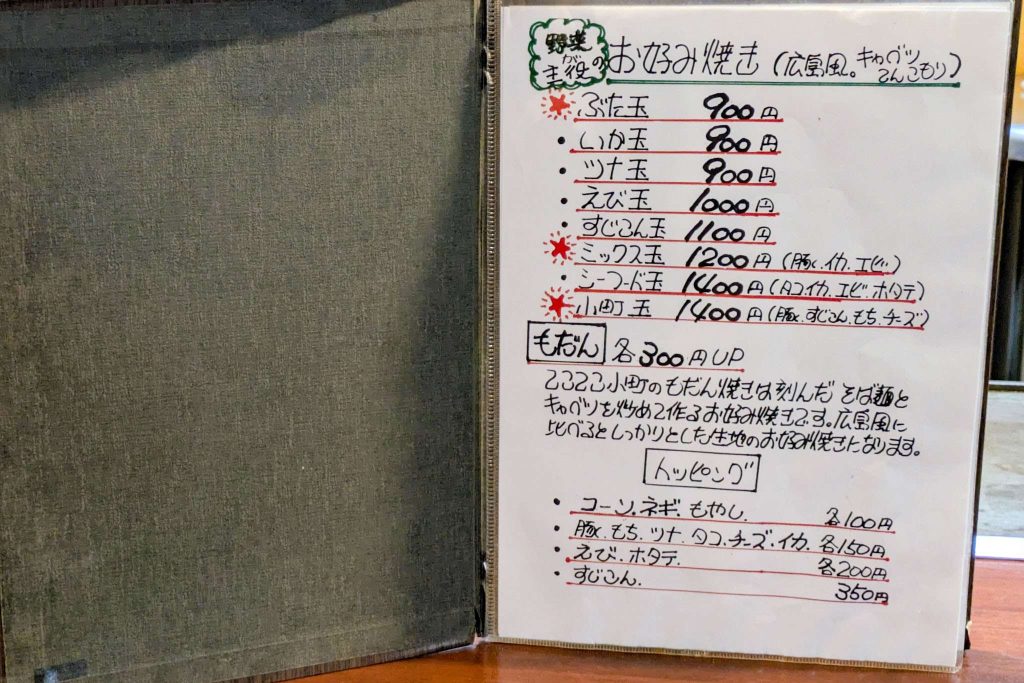 野菜が主役の お好み焼き (広島風。キャベツてんこもり)
ぶた玉 900円
・いか玉 900円
・ツナ玉 900円
・えび玉 1000円
・すじこん玉 1100円
ミックス玉 1200円 (豚.イカ.エビ)
・シーフード玉 1400円 (タコ.イカ.エビ.ホタテ)
小町玉 1400円 (豚.すじこん.もち.チーズ)
もだん 各300円UP
てこてこ小町のもだん焼きは刻んだそば麺と
キャベツを炒めて作るお好み焼きです。広島風に
比べるとしっかりとした生地のお好み焼きになります。
トッピング
・コーン.ネギ.もやし. 各100円
・豚.もち.ツナ.タコ.チーズ.イカ. 各150円
・えび.ホタテ. 各200円
・すじこん. 350円